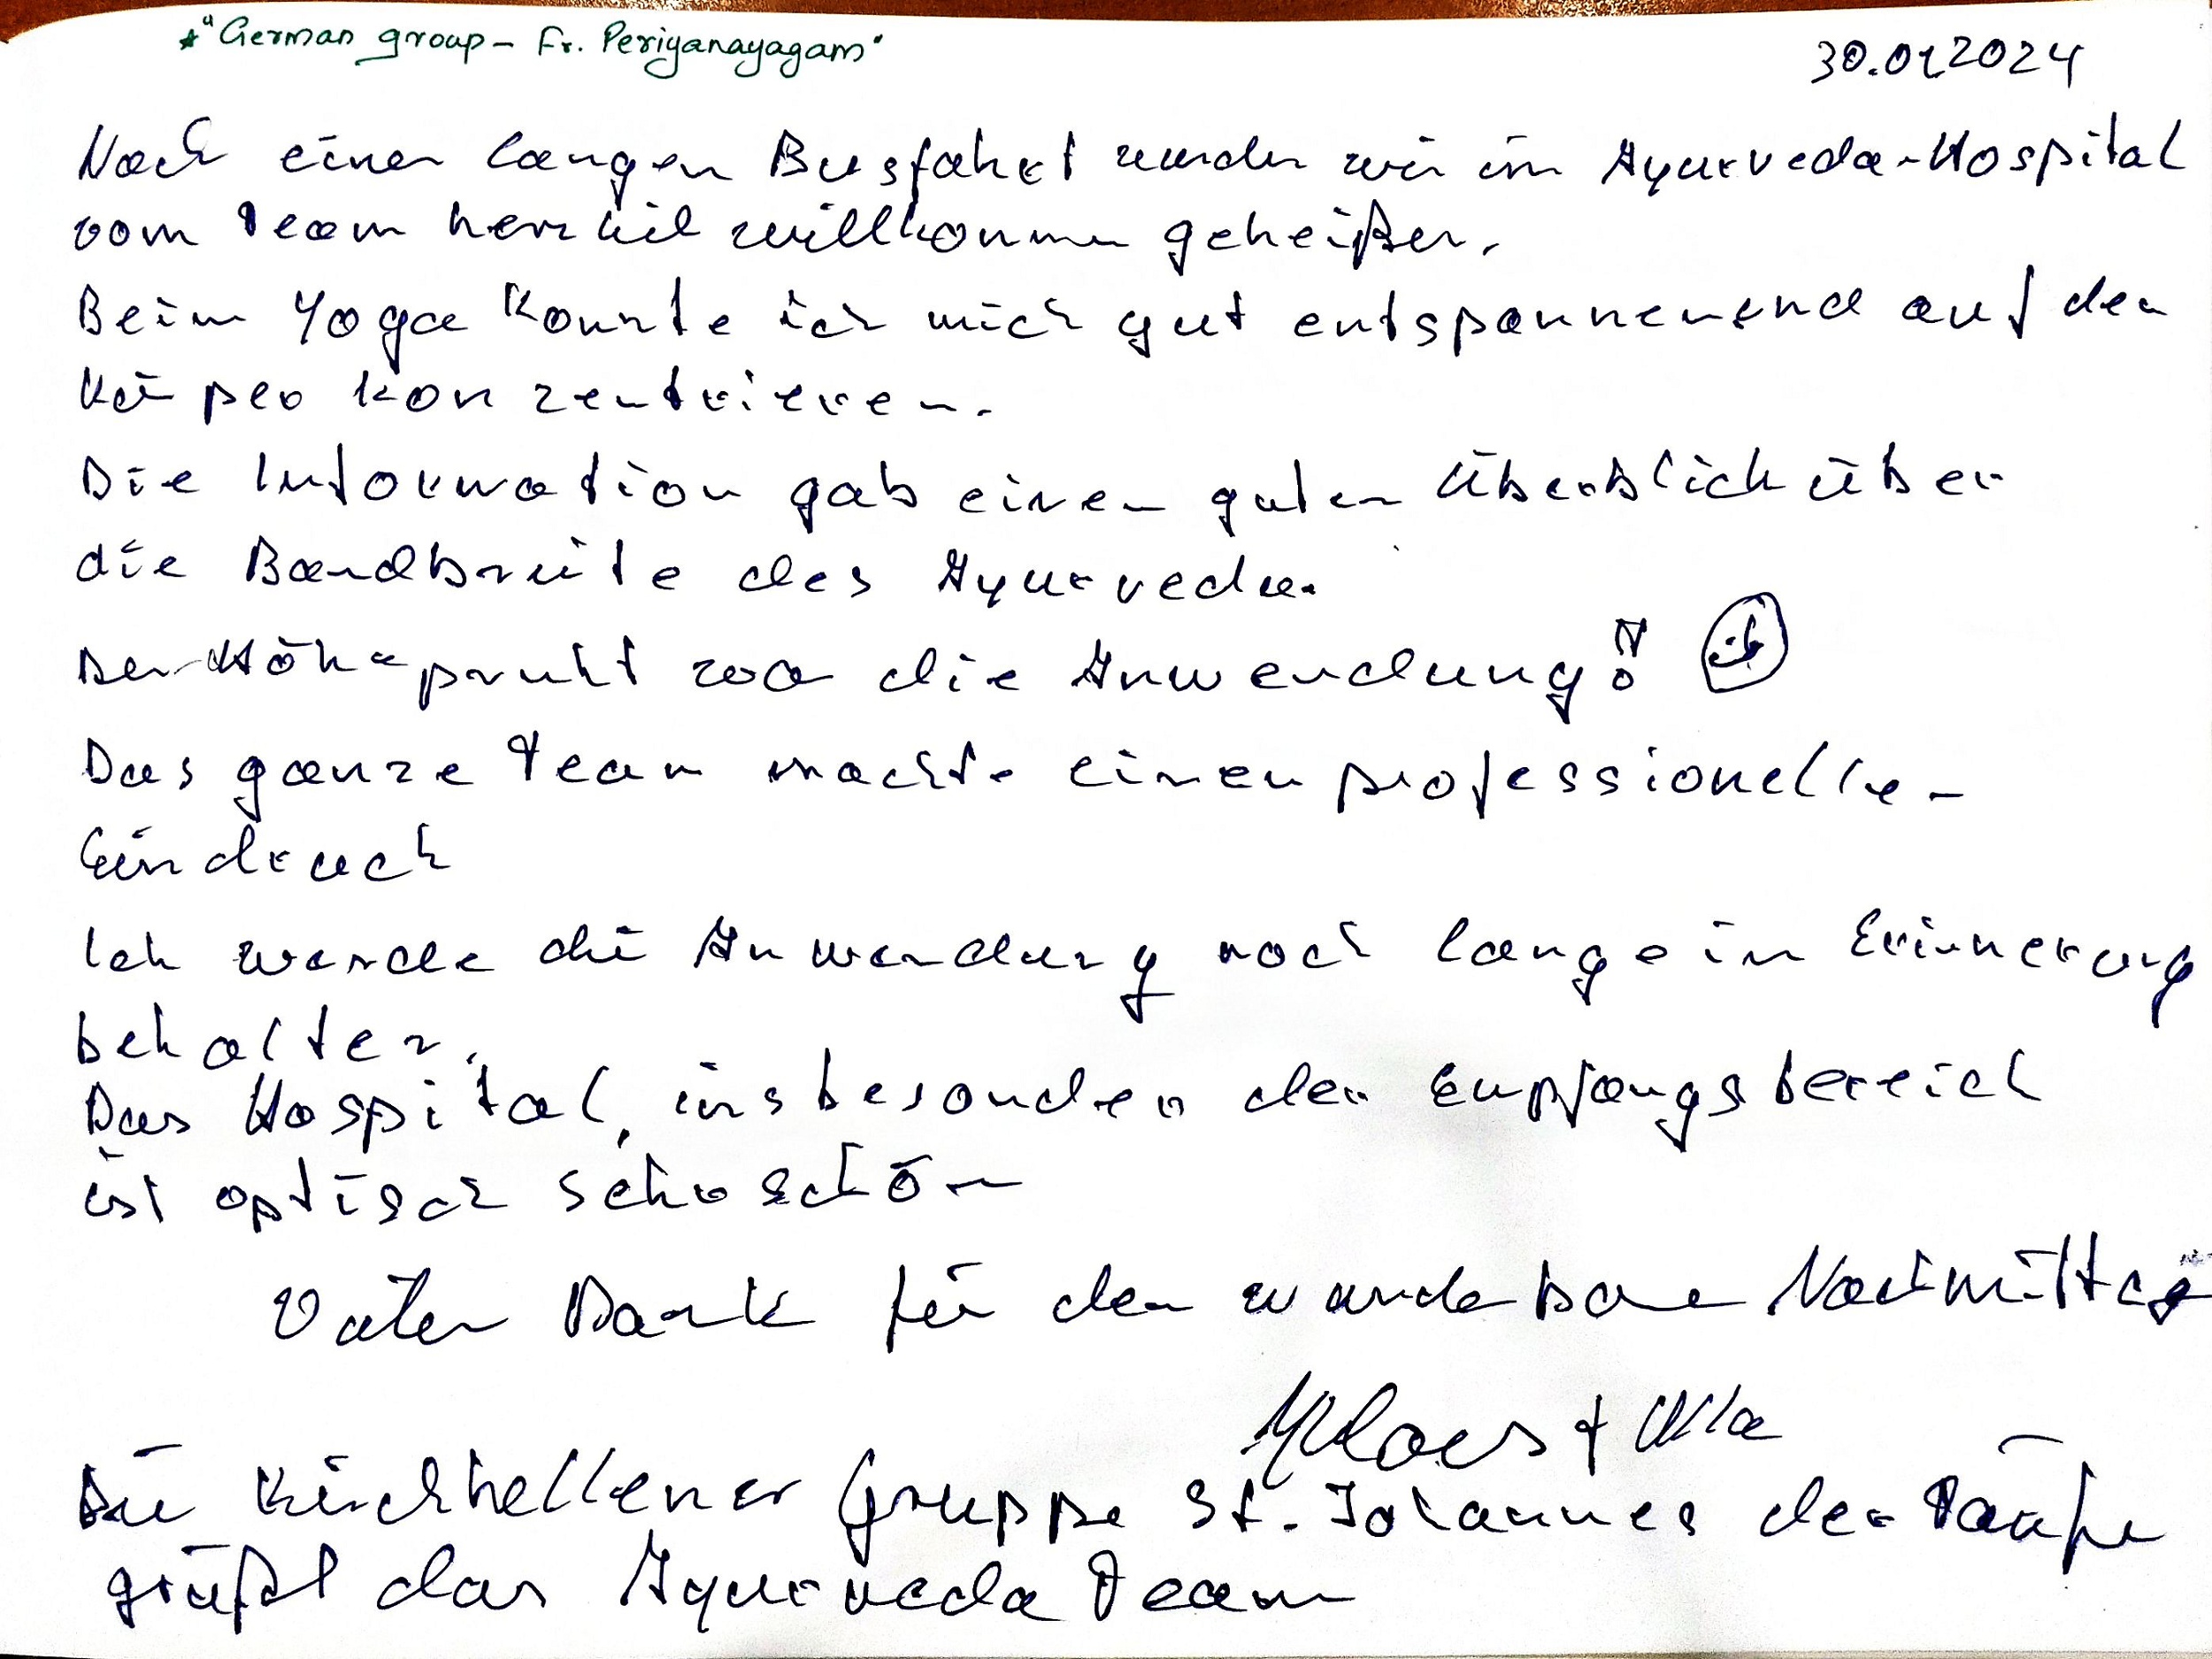 * "German group - Fr. Periyanayagam"
30.01.2024
Nach einer langen Busfahrt wurden wir im Ayurveda-Hospital
vom Team herzlich willkommen geheißen.
Beim Yoga konnte ich mich gut entspannenend auf den
Körper konzentrieren.
Die Information gab einen guten Überblick über
die Bandbreite des Ayurveda.
Der Höhepunkt war die Anwendung!!
Das ganze Team machte einen professionellen
Eindruck
Ich werde die Anwendung noch lange in Erinnerung
behalten.
Das Hospital, insbesondere der Empfangsbereich
ist optisch sehr schön
Vielen Dank für den wunderbaren Nachmittag
Klaus + Ulla
Die Kirchhellener Gruppe St. Johannes der Täufer
grüßt das Ayurveda Team